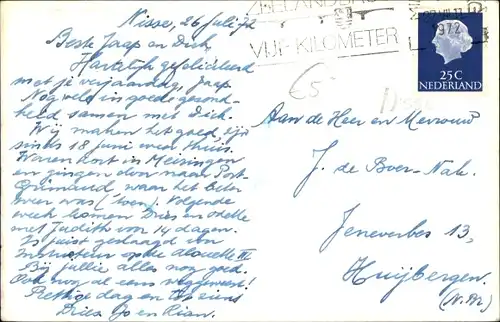 Nisse, 26 Juli '72
Beste Jaap en Dick,
Hartelijk gefeliciteerd
met je verjaardag, Jaap
Nog veel in goede gezond-
heid samen met Dick.
Wij maken het goed, zijn
sinds 18 juni weer thuis.
Waren kort in Meiringen
en gingen door naar Port-
Grimaud, waar het beter
weer was (toen). Volgende
week komen Dries en
met Judith voor 14 dagen.
Is juist geslaagd voor
Instructeur op de Alouette III
Bij jullie alles nog goed.
Ook nog al eens weggeweest?
Prettige dag en tot ziens
Dries, Jo en Rian.
VIJF KILOMETER
1972
25C
NEDERLAND
€5
Aan de Heer en Mevrouw
J. de Boer-
Jeneverbes 13,
Huijbergen.
(N.Br.)